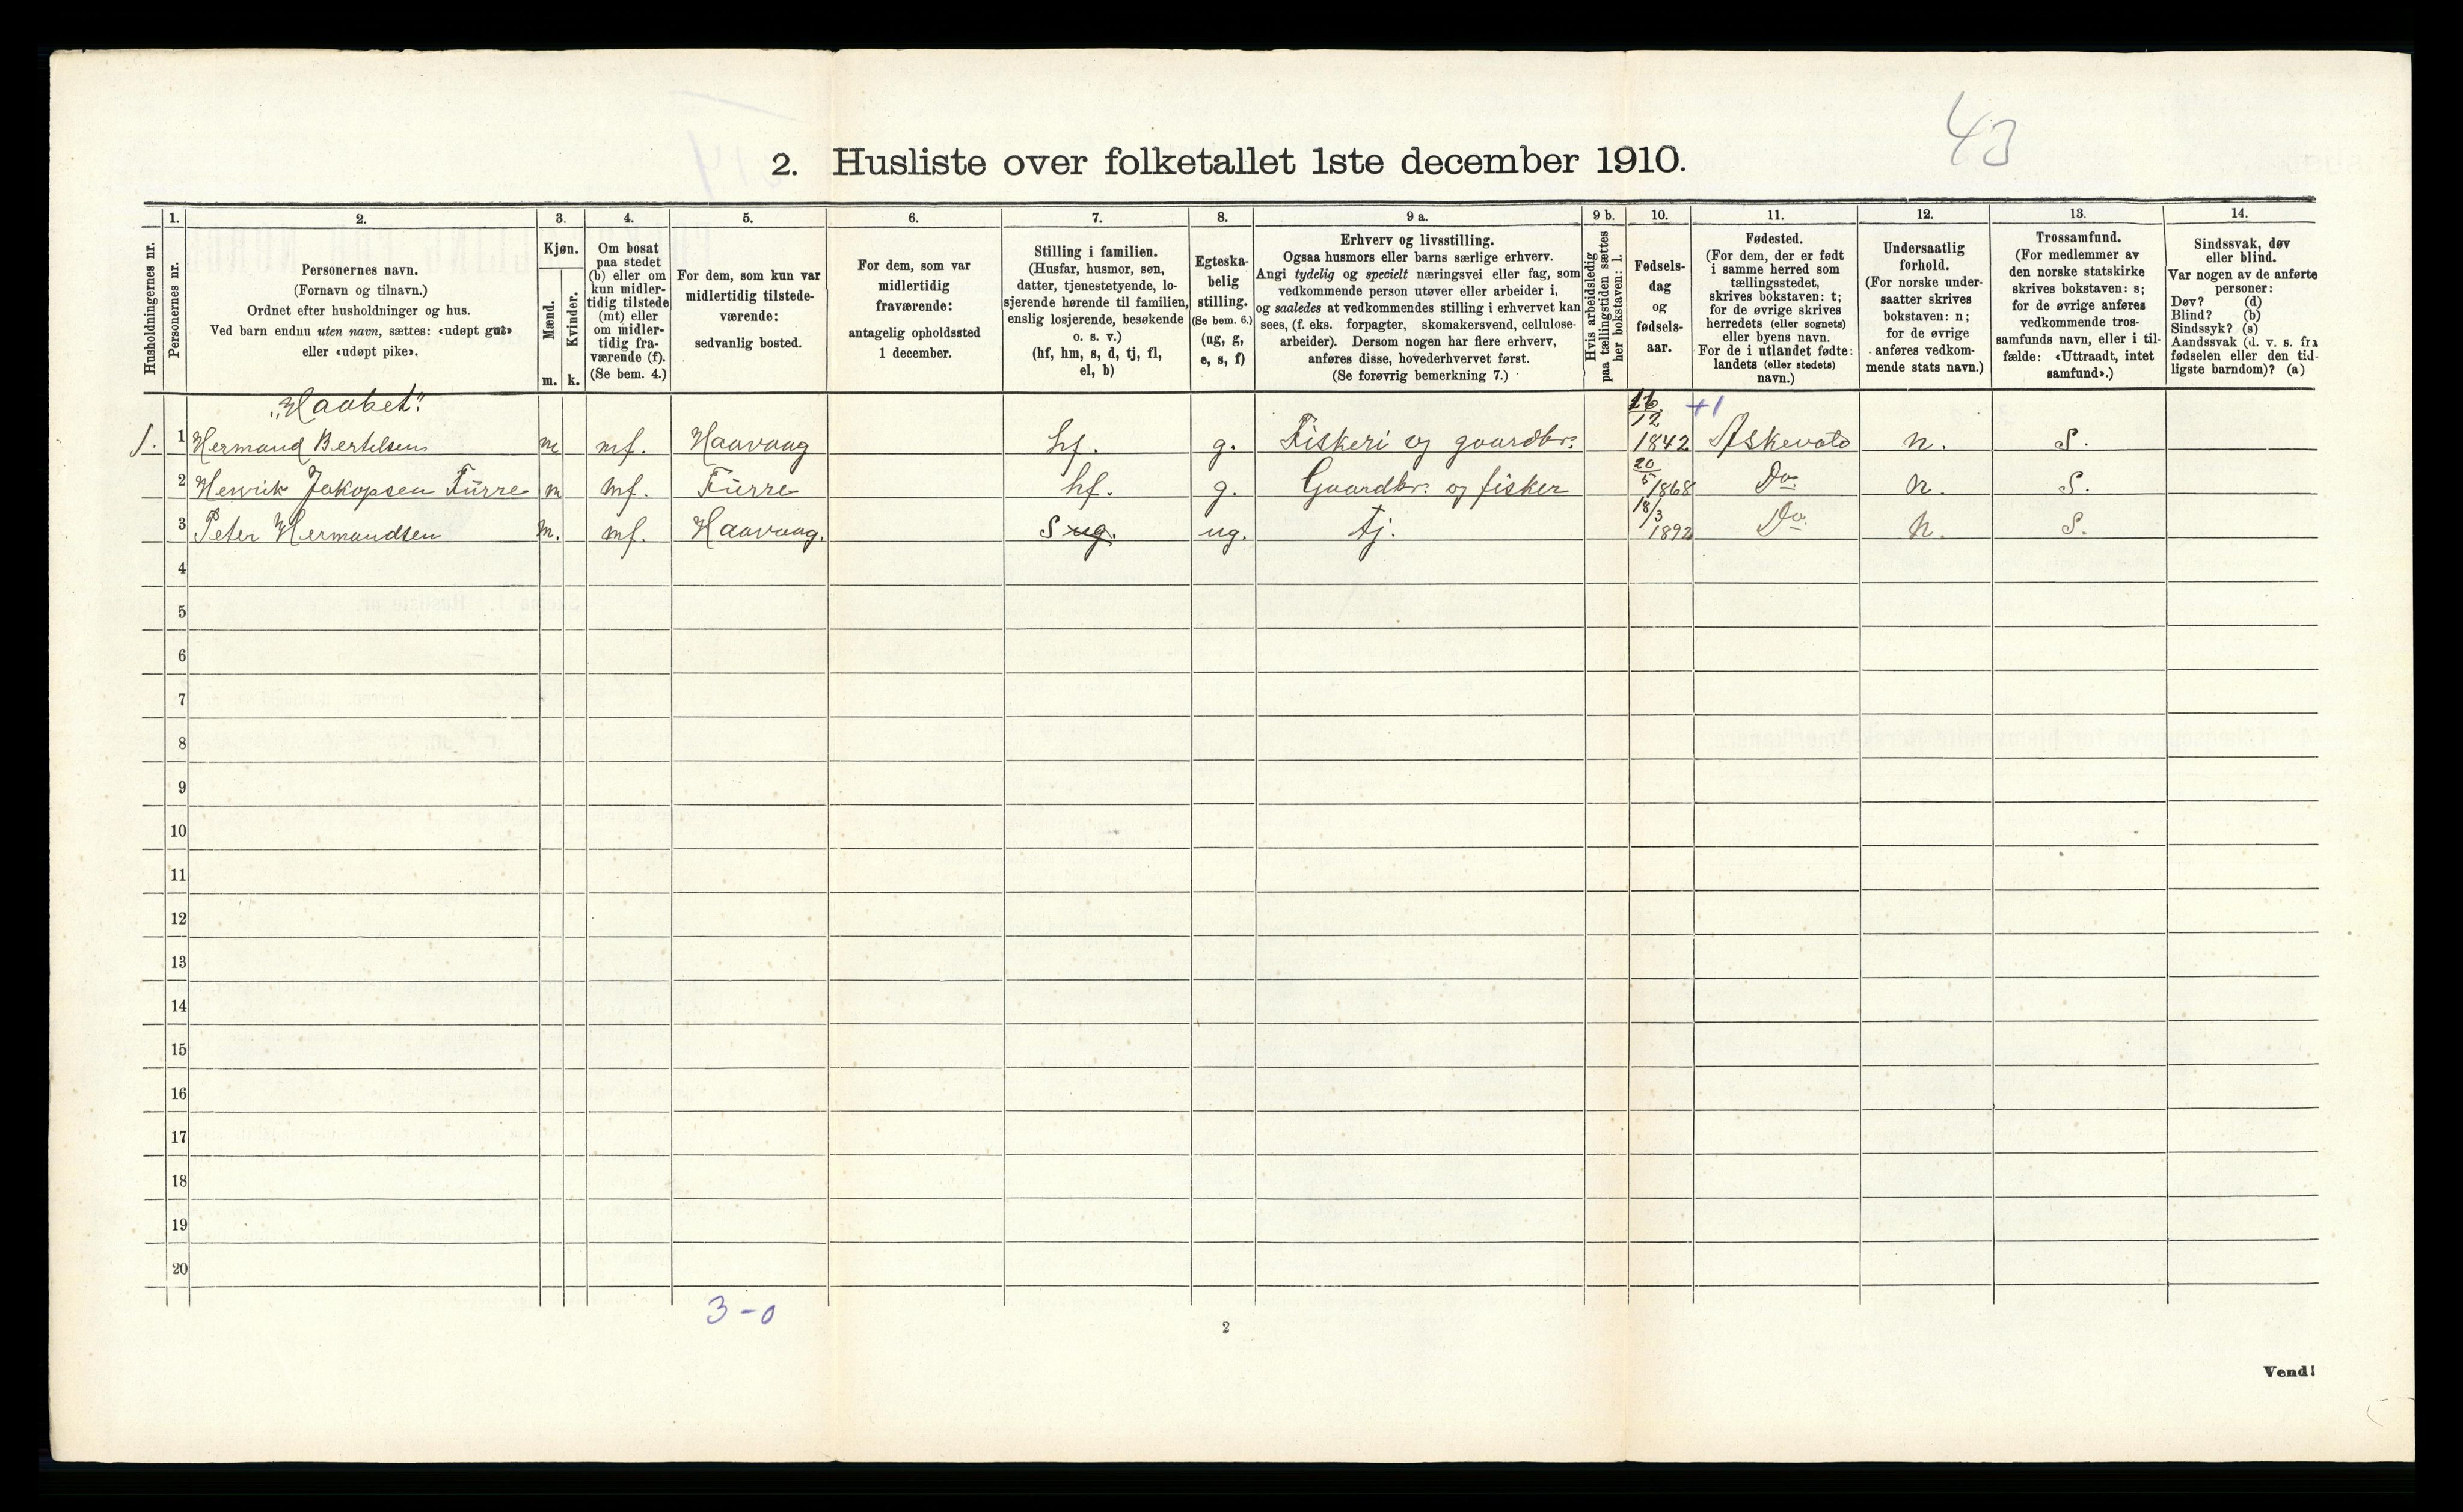 43
2. Husliste over folketallet 1ste december 1910.
Husholdningernes nr.
1.
Personernes nr.
2.
Personernes navn.
(Fornavn og tilnavn.)
Ordnet efter husholdninger og hus.
Ved barn endnu uten navn, sættes: «udøpt gut»
eller «udøpt pike».
3.
Kjøn.
Mænd.
Kvinder.
m. k.
4.
Om bosat
paa stedet
(b) eller om
kun midler-
tidig tilstede
(mt) eller
om midler-
tidig fra-
værende (f).
(Se bem. 4.)
5.
For dem, som kun var
midlertidig tilstede-
værende:
sedvanlig bosted.
6.
For dem, som var
midlertidig
fraværende:
antagelig opholdssted
1 december.
7.
Stilling i familien.
(Husfar, husmor, søn,
datter, tjenestetyende, lo-
sjerende hørende til familien,
enslig losjerende, besøkende
o. s. v.)
(hf, hm, s, d, tj, fl,
el, b)
8.
Egteska-
belig
stilling.
(Se bem. 6.)
(ug, g,
e, s, f)
9 a.
Erhverv og livsstilling.
Ogsaa husmors eller barns særlige erhverv.
Angi tydelig og specielt næringsvei eller fag, som
vedkommende person utøver eller arbeider i,
og saaledes at vedkommendes stilling i erhvervet kan
sees, (f. eks. forpagter, skomakersvend, cellulose-
arbeider). Dersom nogen har flere erhverv,
anføres disse, hovederhvervet først.
(Se forøvrig bemerkning 7.)
9 b.
Hvis arbeidsledig
paa tællingstiden sættes
her bokstaven: l.
10.
Fødsels-
dag
og
fødsels-
aar.
11.
Fødested.
(For dem, der er født
i samme herred som
tællingsstedet,
skrives bokstaven: t;
for de øvrige skrives
herredets (eller sognets)
eller byens navn.
For de i utlandet fødte:
landets (eller stedets)
navn.)
12.
Undersaatlig
forhold.
(For norske under-
saatter skrives
bokstaven: n;
for de øvrige
anføres vedkom-
mende stats navn.)
13.
Trossamfund.
(For medlemmer av
den norske statskirke
skrives bokstaven: s;
for de øvrige anføres
vedkommende tros-
samfunds navn, eller i til-
fælde: «Uttraadt, intet
samfund».)
14.
Sindssvak, døv
eller blind.
Var nogen av de anførte
personer:
Døv? (d)
Blind? (b)
Sindssyk? (s)
Aandssvak (d. v. s. fra
fødselen eller den tid-
ligste barndom)? (a)
"Haabet"
1. 1 Hermand Bertelsen m mf. Haavaag hf. g. Fiskeri og gaardbr. 12 1842 +1 Askevold n. S.
2 Henrik Jakopsen Fürre m mf. Fürre hf. g. Gaardbr. og fisker 20/5 1868 Do n. S.
3 Peter Hermandsen m. mf. Haavaag. S ug. ug. tj. 18/3 1892 Do n. S.
4
5
6
7
8
9
10
11
12
13
14
15
16
17
18
19
20
3-0
2
Vend!